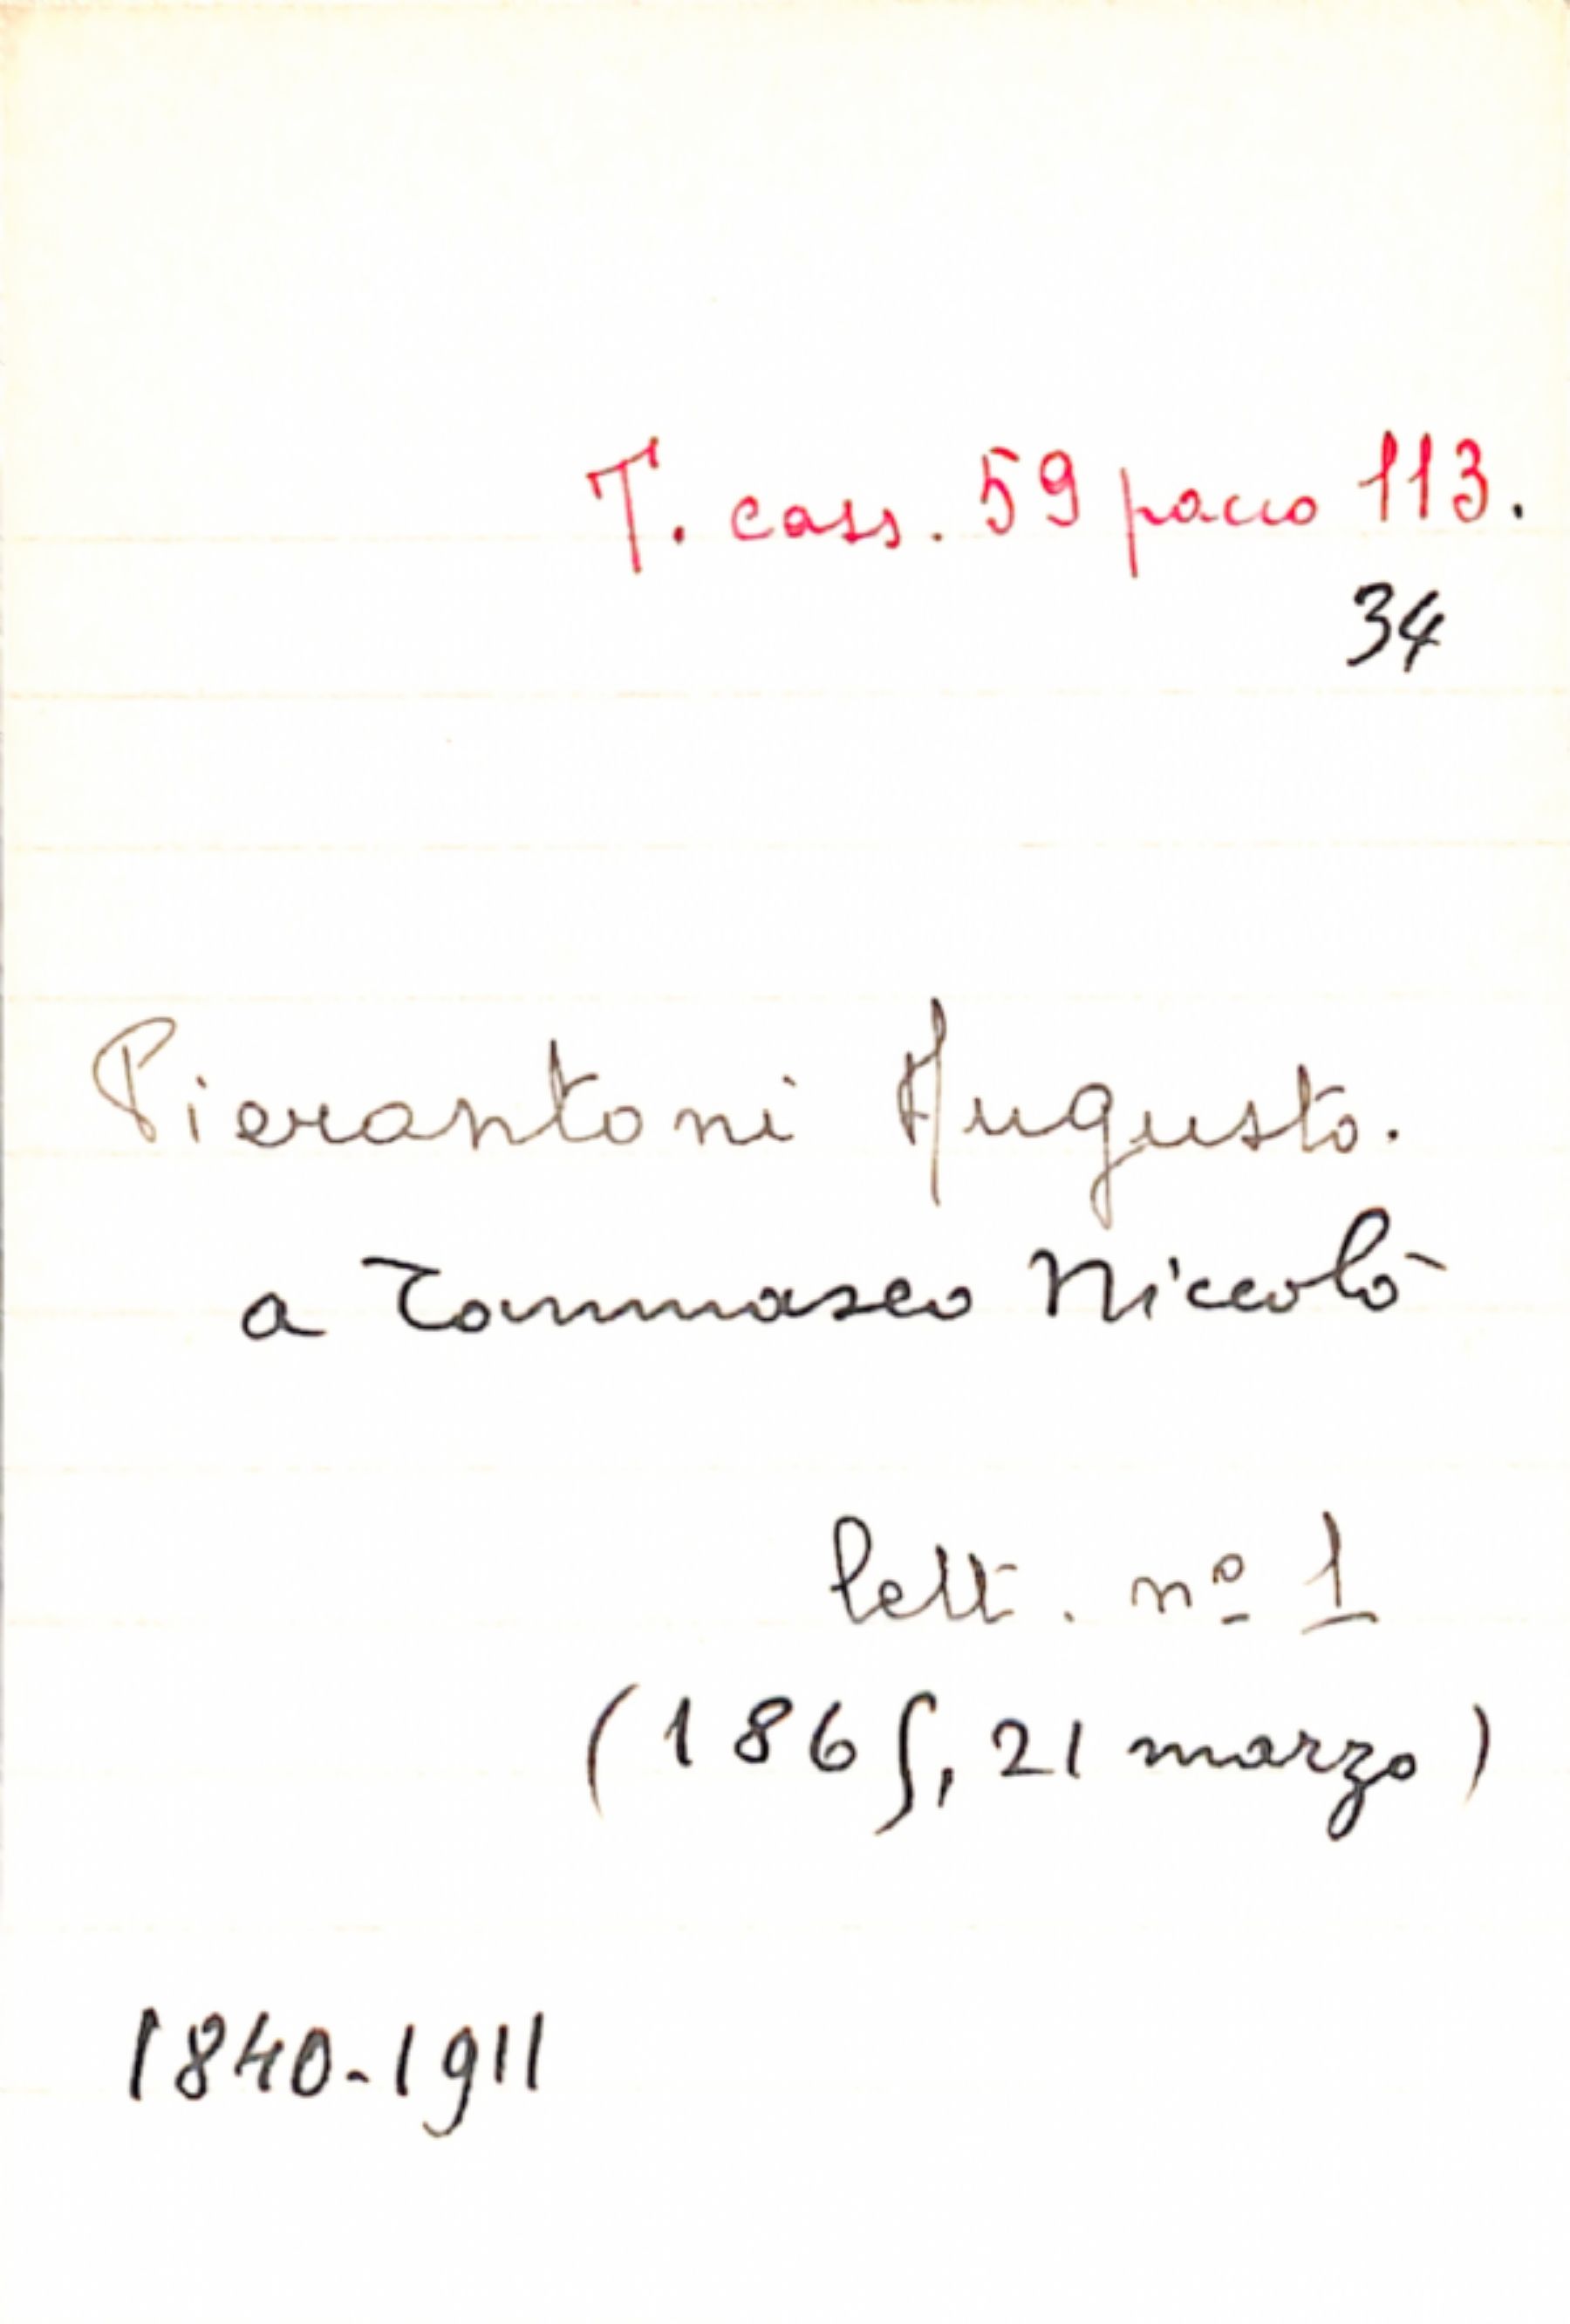 T. cass. 59 pacco 113.
34
Pierantoni Augusto.
a Tommaseo Niccolò
lett. nº 1
(1865, 21 marzo)
1840-1911